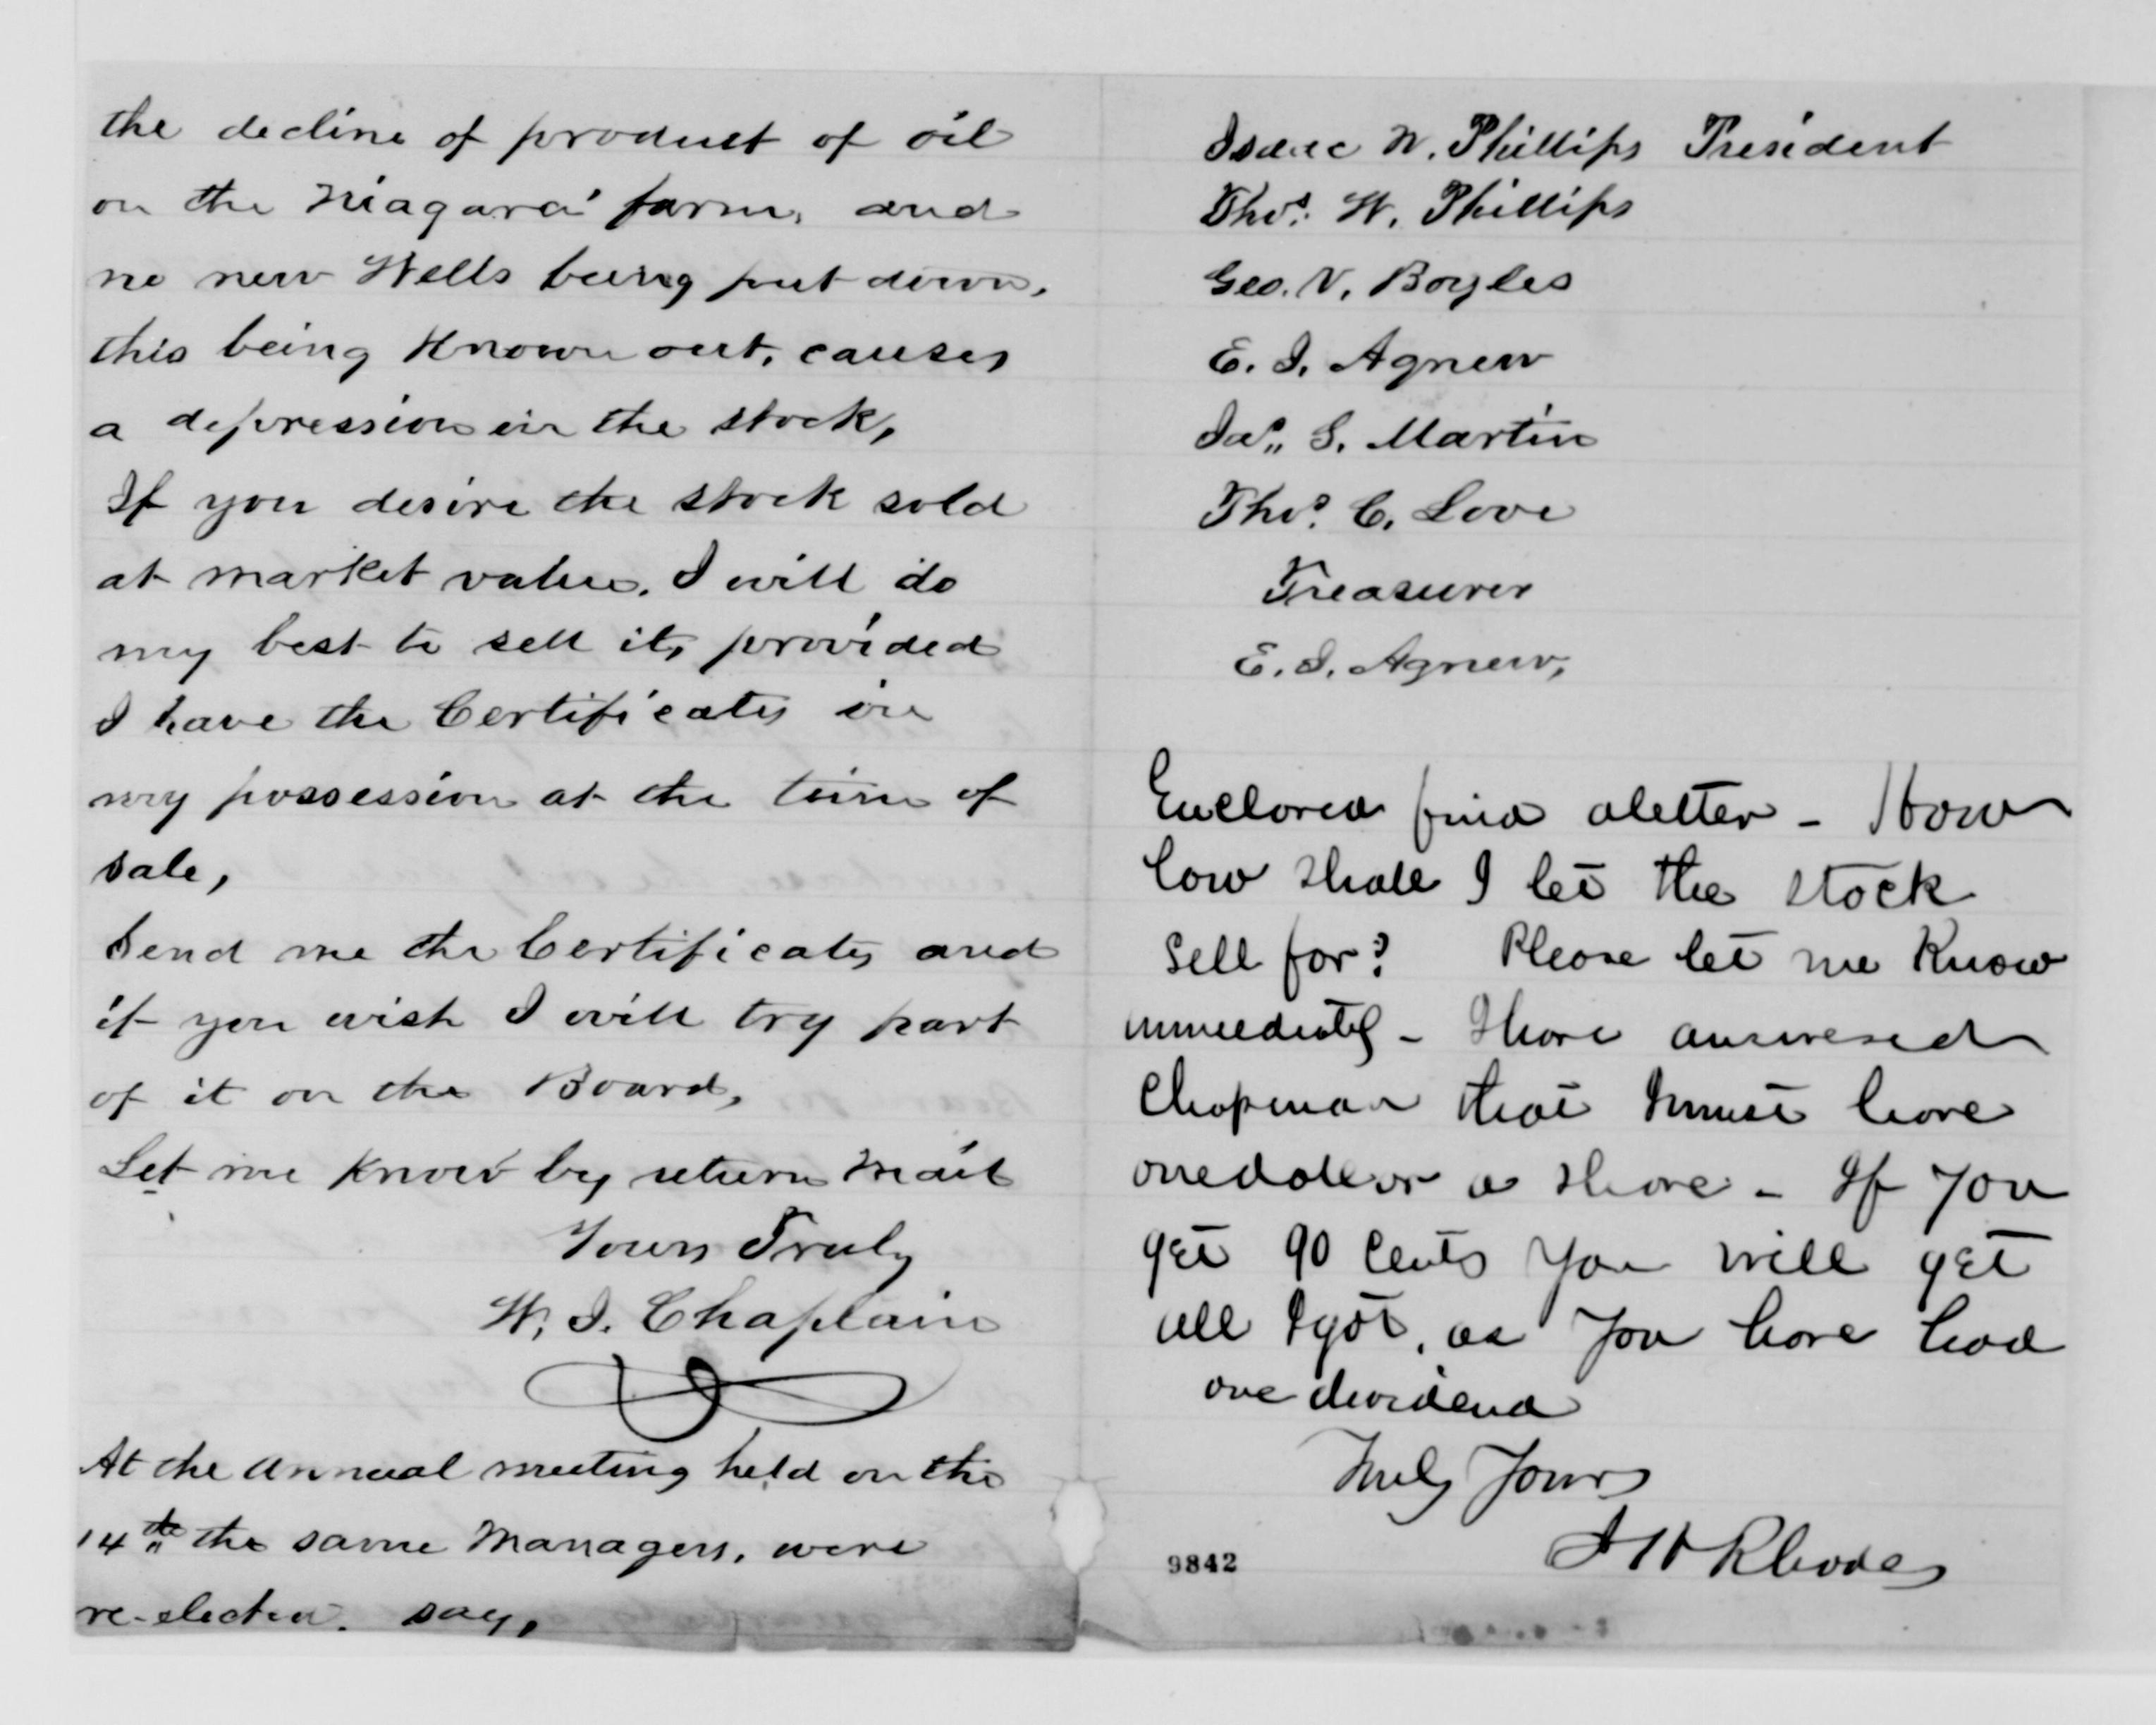 the decline of product of oil
on the Niagara farm, and
no new Wells being put down,
this being Known out, causes
a depression in the stock,
If you desire the stock sold
at market value, I will do
my best to sell it, provided
I have the Certificates in
my possession at the time of
sale,
Send me the Certificates and
if you wish I will try part
of it on the Board,
Let me Know by return Mail
Yours Truly
W. I. Chaplain
At the annual meeting held on the
14th the same Managers, were
re-elected. say,
Isaac N. Phillips President
Thos. W. Phillips
Geo. V. Boyles
E. I. Agnew
Jas. G. Martin
Thos. C. Love
Treasurer
E. I. Agnew,
Enclosed find a letter - How
low shall I let the stock
sell for? Please let me Know
immediately - I have answered
Chapman that I must have
one dollar a share - If you
get 90 cents you will get
all I got, as you have had
one dividend
Truly Yours
J H Rhodes
9842